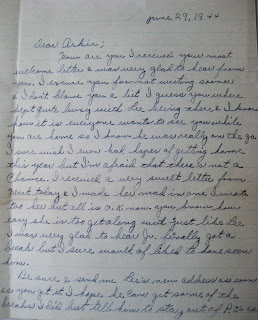 June 29, 1944
Dear Arkie;
How are you I received your most
welcome letter & was very glad to hear from
you. I excuse you for not writing sooner
& I don't blame you a bit I guess you where
kept quite busy with Lee being there & I know
how it is everyone wants to see you while
you are home so I know he was really on the go.
I sure wish I even had hopes of getting home
this year but I'm afraid that there is not a
chance. I received a very sweet letter from
today & I made her mad in one I wrote
too her but all is O.K now you know how
easy she is too get along with just like Lee
I was very glad to hear Jr. finally got a
break but I sure would of liked to have seen
him.
Be sure & send me Lee's new address as soon
as you get it I hope he can get some of the
breaks I did but tell him to stay out of P.T.s as